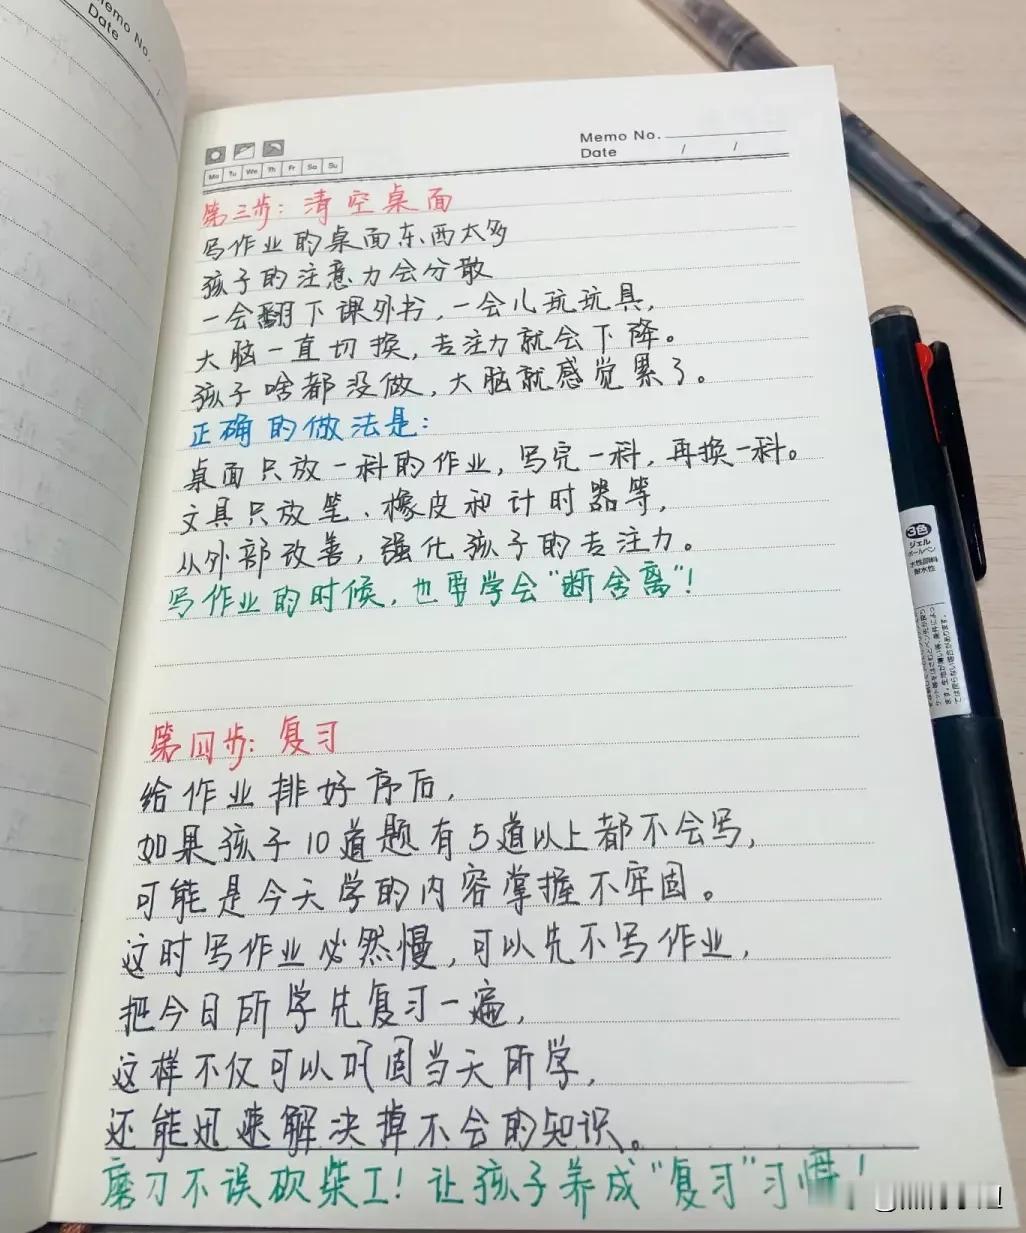 Memo No.
Date
Memo No.
Date / /
Mo Tu We Th Fr Sa Su
第三步：清空桌面
写作业的桌面东西太多
孩子的注意力会分散
一会翻下课外书，一会儿玩玩具，
大脑一直切换，专注力就会下降。
孩子啥都没做，大脑就感觉累了。
正确的做法是：
桌面只放一科的作业，写完一科，再换一科。
文具只放笔、橡皮和计时器等，
从外部改善，强化孩子的专注力。
写作业的时候，也要学会“断舍离”！
第四步：复习
给作业排好序后，
如果孩子10道题有5道以上都不会写，
可能是今天学的内容掌握不牢固。
这时写作业必然慢，可以先不写作业，
把今日所学先复习一遍，
这样不仅可以巩固当天所学，
还能迅速解决掉不会的知识。
磨刀不误砍柴工！让孩子养成“复习”习惯！
3色
ジェル
ボールペン
水性顔料
耐水性